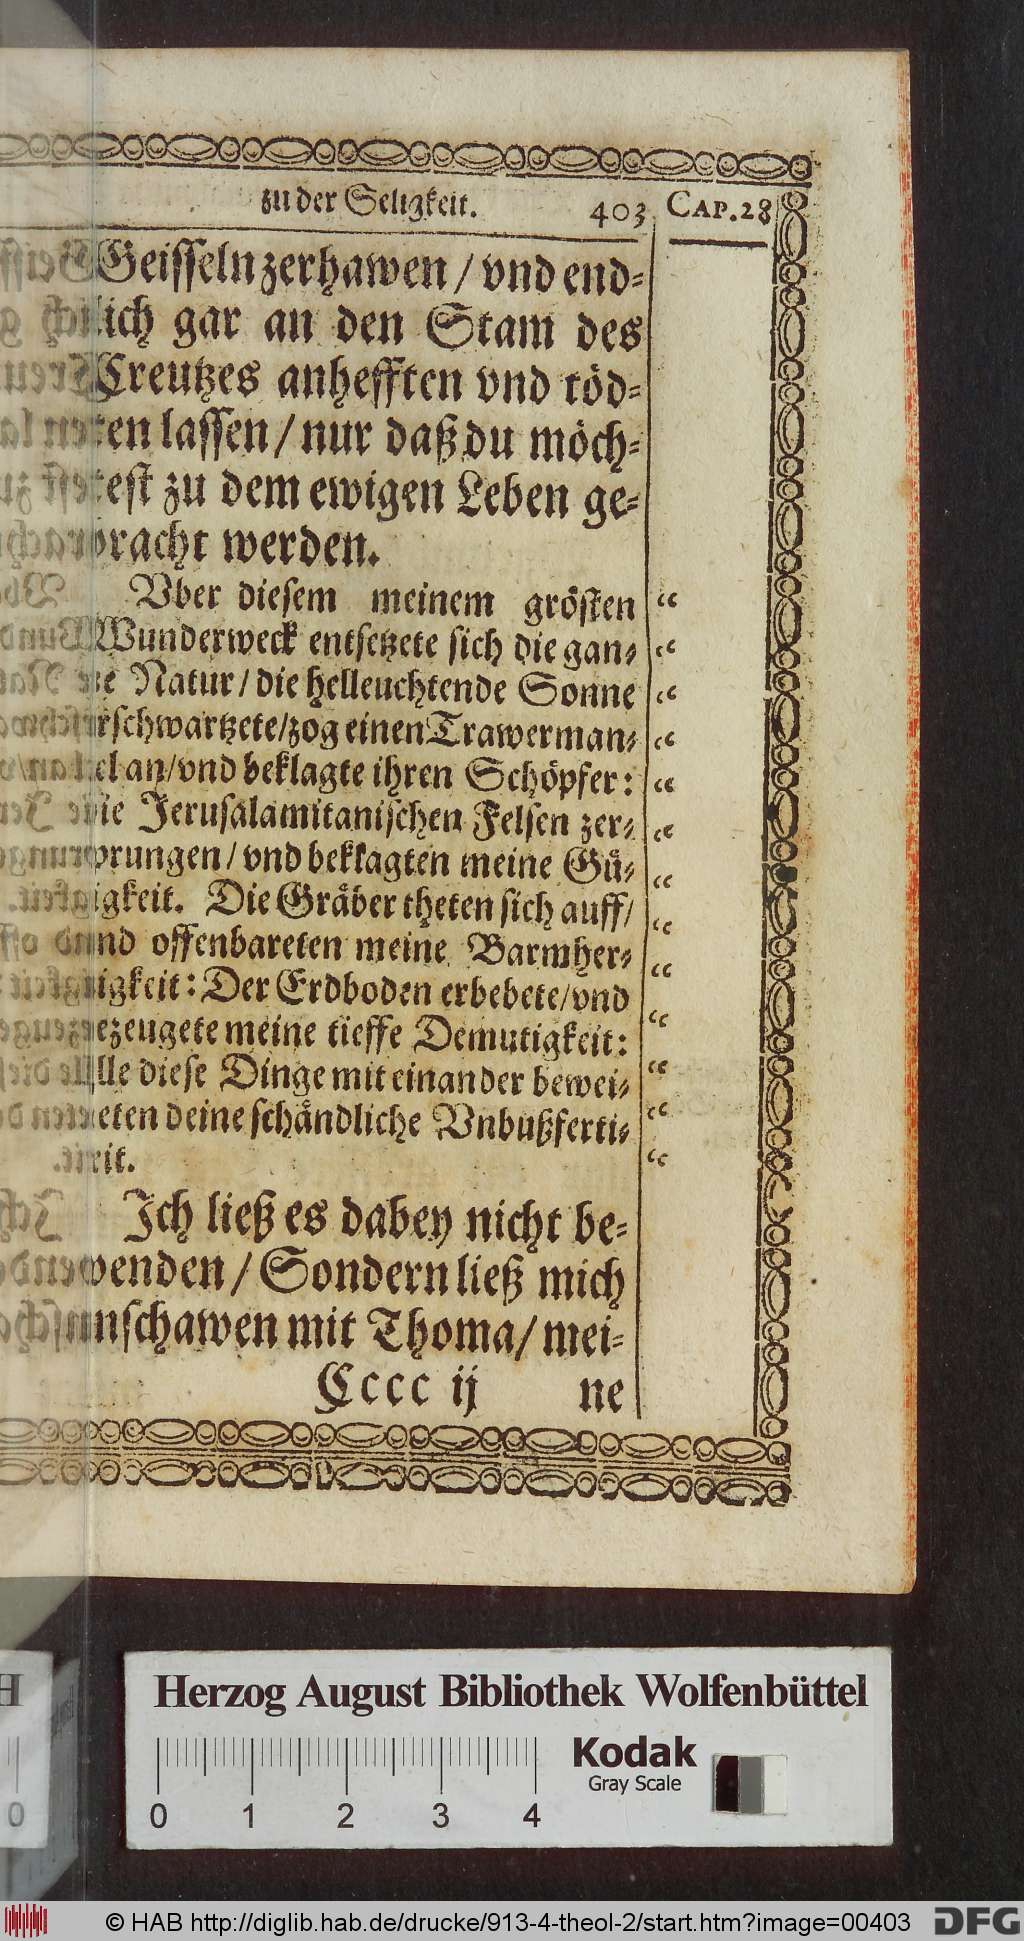 zu der Seligkeit. 403 CAP. 28
Geisseln zerhawen / vnd end-
lich gar an den Stam des
Creutzes anhefften vnd töd-
ten lassen / nur daß du möch-
test zu dem ewigen Leben ge-
bracht werden.
Vber diesem meinem grösten “
Wunderweck entsetzete sich die gan- “
tze Natur / die helleuchtende Sonne “
verschwartzete / zog einen Trawerman- “
tel an / vnd beklagte ihren Schöpfer: “
die Jerusalamitanischen Felsen zer- “
sprungen / vnd beklagten meine Gü- “
tigkeit. Die Gräber theten sich auff / “
vnd offenbareten meine Barmher- “
tzigkeit: Der Erdboden erbebete / vnd “
bezeugete meine tieffe Demutigkeit: “
Alle diese Dinge mit einander bewei- “
neten deine schändliche Vnbußferti- “
“
Ich ließ es dabey nicht be-
wenden / Sondern ließ mich
anschawen mit Thoma / mei-
Cccc ij ne
Herzog August Bibliothek Wolfenbüttel
Kodak
Gray Scale
0 1 2 3 4
H
0
© HAB http://diglib.hab.de/drucke/913-4-theol-2/start.htm?image=00403 DFG